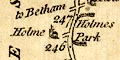 to Betham
247
Holmes
Holme
Park
246
E
S